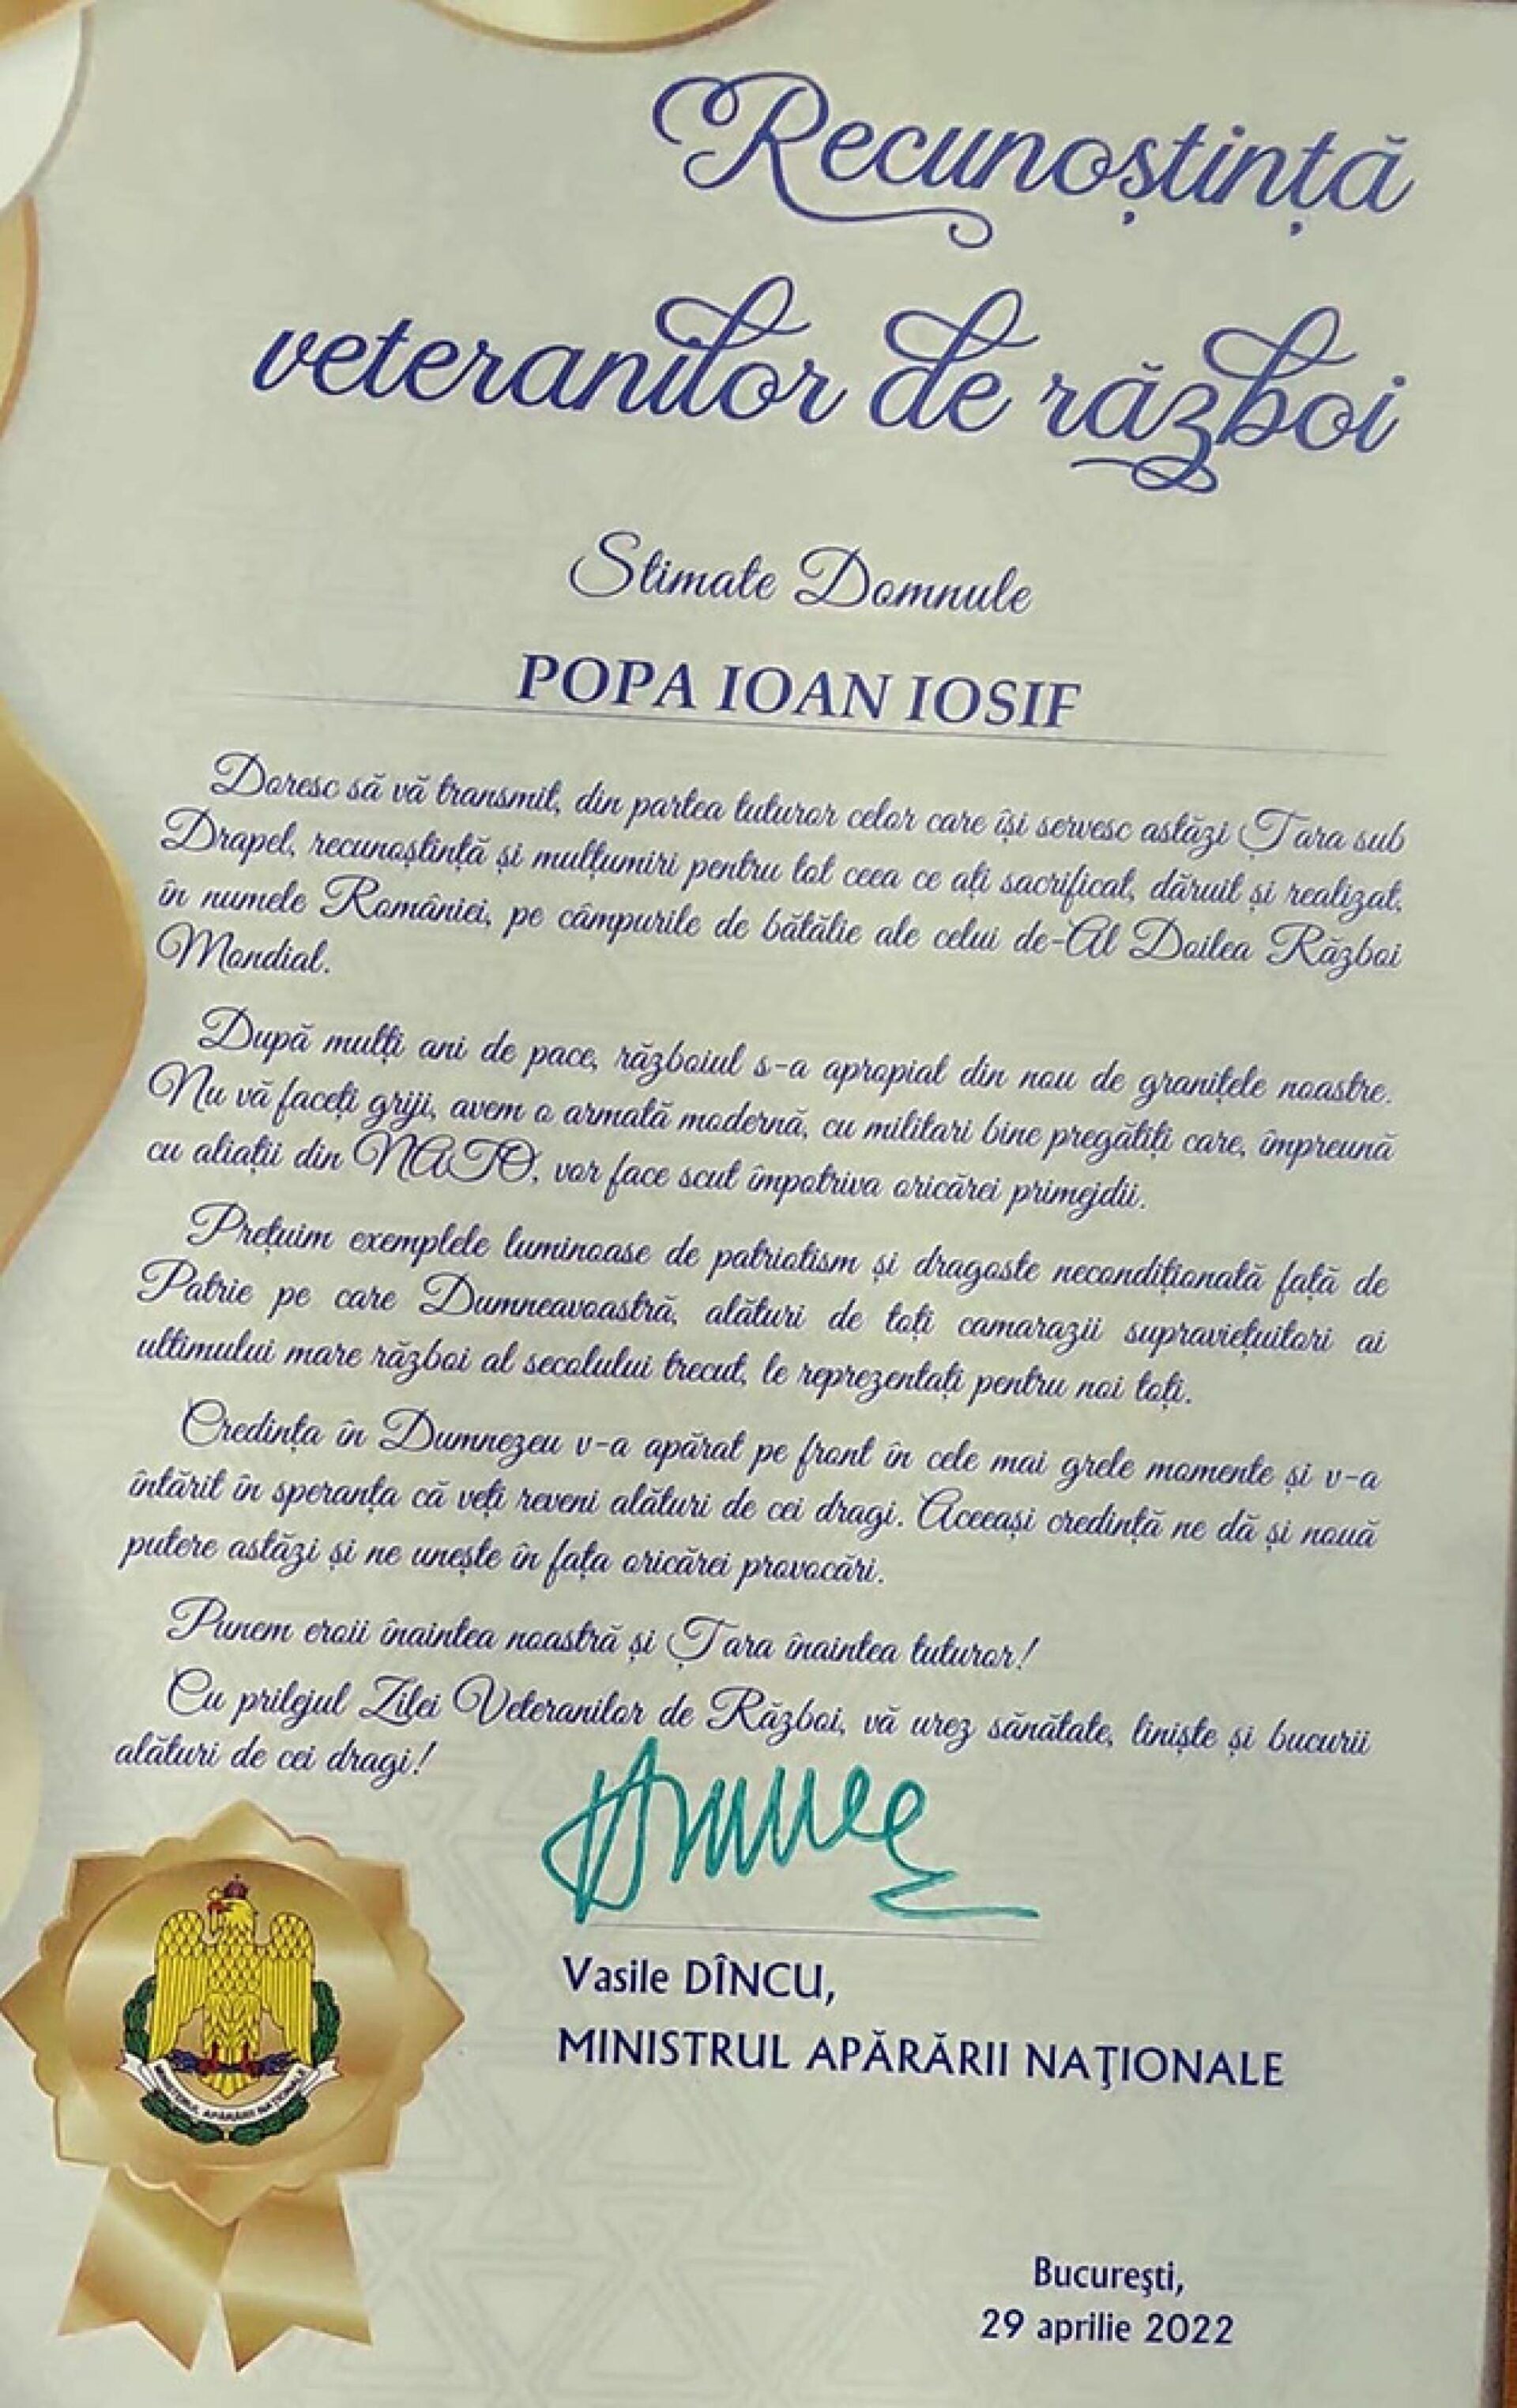 Recunoștință
veteranilor de război
Stimate Domnule
POPA IOAN IOSIF
Doresc să vă transmit, din partea tuturor celor care își servesc astăzi Țara sub
Drapel, recunoștință și mulțumiri pentru tot ceea ce ați sacrificat, dăruit și realizat,
în numele României, pe câmpurile de bătălie ale celui de-Al Doilea Război
Mondial.
După mulți ani de pace, războiul s-a apropiat din nou de granițele noastre.
Nu vă faceți griji, avem o armată modernă, cu militari bine pregătiți care, împreună
cu aliații din NATO, vor face scut împotriva oricărei primejdii.
Prețuim exemplele luminoase de patriotism și dragoste necondiționată față de
Patrie pe care Dumneavoastră, alături de toți camarazii supraviețuitori ai
ultimului mare război al secolului trecut, le reprezentați pentru noi toți.
Credința în Dumnezeu v-a apărat pe front în cele mai grele momente și v-a
întărit în speranța că veți reveni alături de cei dragi. Aceeași credință ne dă și nouă
putere astăzi și ne unește în fața oricărei provocări.
Punem eroii înaintea noastră și Țara înaintea tuturor!
Cu prilejul Zilei Veteranilor de Război, vă urez sănătate, liniște și bucurii
alături de cei dragi!
Vasile DÎNCU,
MINISTRUL APĂRĂRII NAŢIONALE
MINISTERUL APĂRĂRII NAȚIONALE
Bucureşti,
29 aprilie 2022